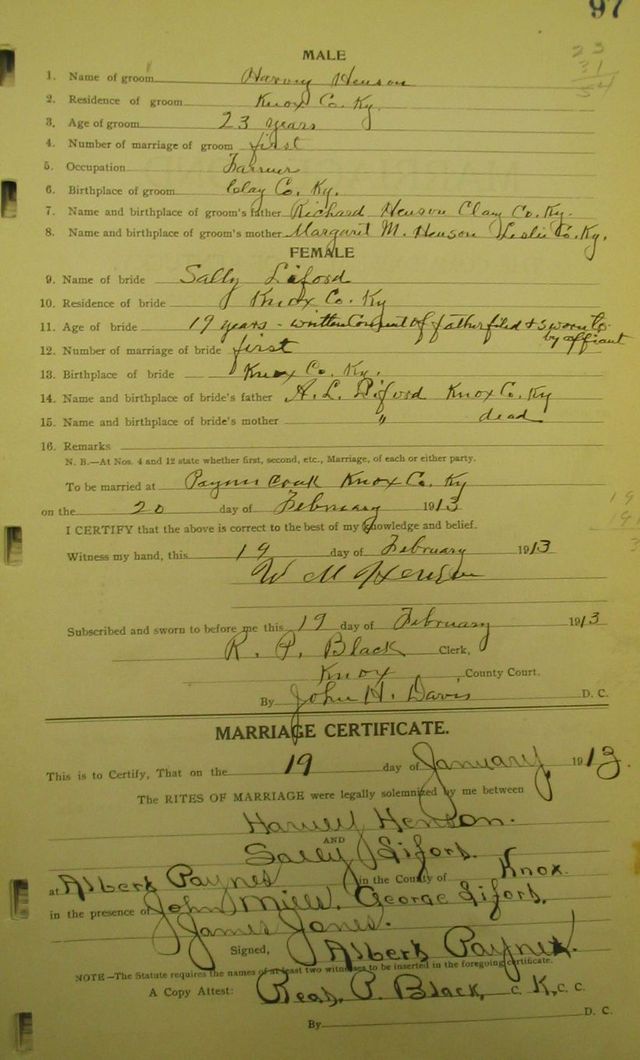 97
23
31
54
MALE
1. Name of groom Harvey Henson
2. Residence of groom Knox Co. Ky.
3. Age of groom 23 years
4. Number of marriage of groom first
5. Occupation Farmer
6. Birthplace of groom Clay Co. Ky.
7. Name and birthplace of groom's father Richard Henson Clay Co. Ky.
8. Name and birthplace of groom's mother Margaret M. Henson Leslie Co. Ky.
FEMALE
9. Name of bride Sally Liford
10. Residence of bride Knox Co. Ky
11. Age of bride 19 years - written Consent of father filed & sworn to
by affiant
12. Number of marriage of bride first
13. Birthplace of bride Knox Co. Ky.
14. Name and birthplace of bride's father A. L. Liford Knox Co. Ky
15. Name and birthplace of bride's mother " dead
16. Remarks
N. B.—At Nos. 4 and 12 state whether first, second, etc., Marriage, of each or either party.
To be married at Knox Co. Ky
on the 20 day of February 1913
I CERTIFY that the above is correct to the best of my knowledge and belief.
Witness my hand, this 19 day of February 1913
W M Henson
Subscribed and sworn to before me this 19 day of February 1913
R. P. Black Clerk,
Knox County Court.
By John H. Davis D. C.
MARRIAGE CERTIFICATE.
This is to Certify, That on the 19 day of January, 1913.
The RITES OF MARRIAGE were legally solemnized by me between
Harvey Henson.
AND
Sally Liford.
at Albert Paynes in the County of Knox.
in the presence of John Mills. George Liford.
James Jones.
Signed, Albert Payne.
NOTE—The Statute requires the names of at least two witnesses to be inserted in the foregoing certificate.
A Copy Attest: Read. P. Black, C. K. C. C.
By D. C.